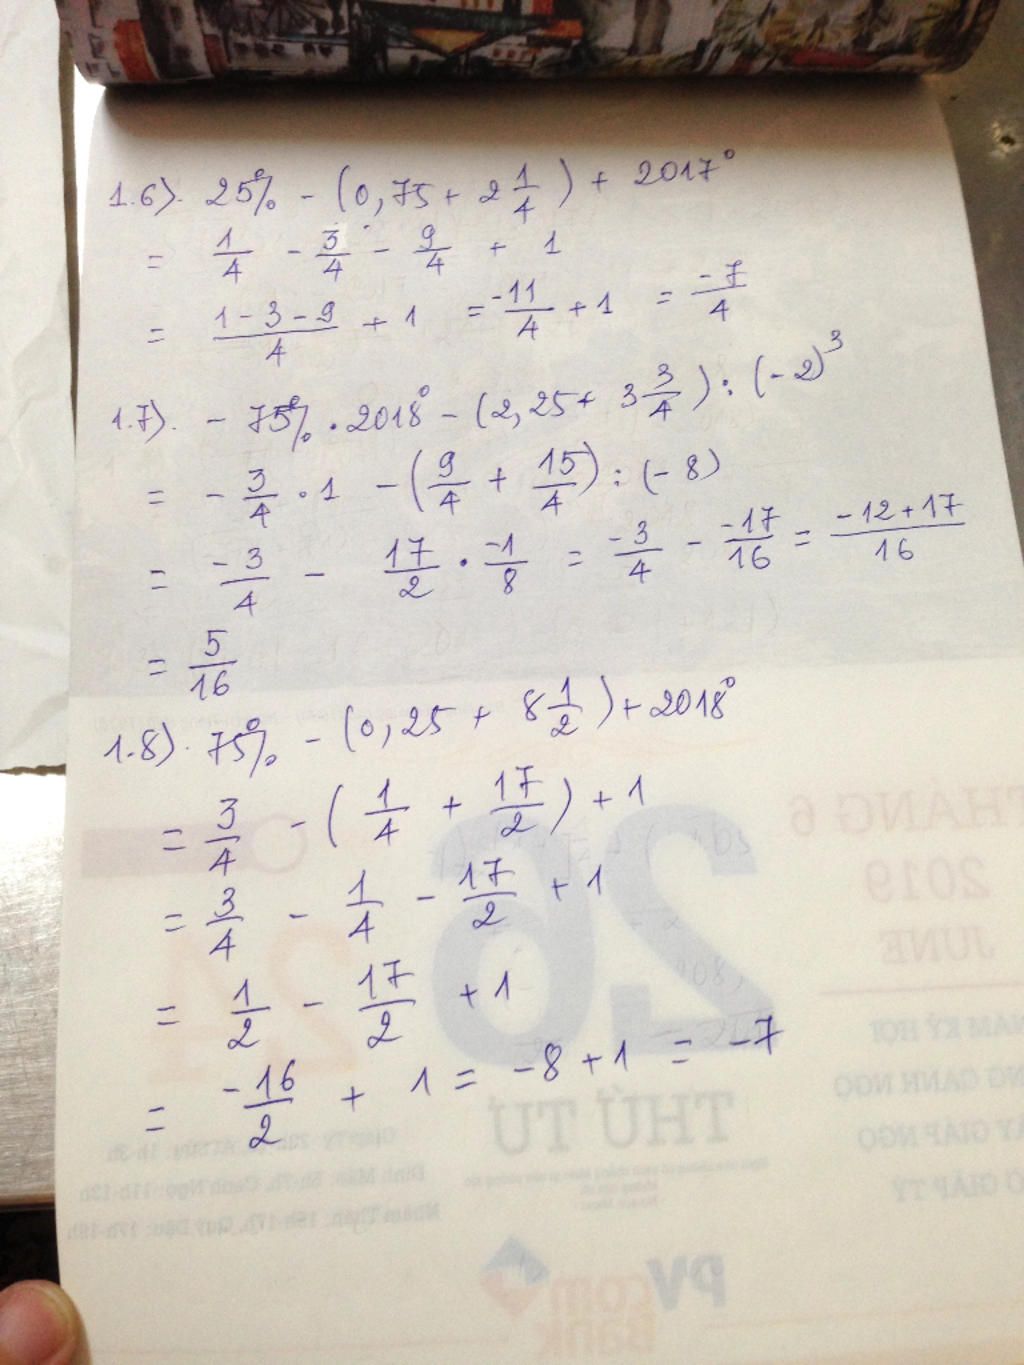 1.6). 25% - (0,75 + 2 1/4) + 2017⁰
= 1/4 - 3/4 - 9/4 + 1
= (1-3-9)/4 + 1 = -11/4 + 1 = -7/4
1.7). - 75% . 2018⁰ - (2,25 + 3 3/4) : (-2)³
= - 3/4 . 1 - (9/4 + 15/4) : (-8)
= -3/4 - 17/2 . -1/8 = -3/4 - -17/16 = (-12+17)/16
= 5/16
1.8). 75% - (0,25 + 8 1/2) + 2018⁰
= 3/4 - (1/4 + 17/2) + 1
= 3/4 - 1/4 - 17/2 + 1
= 1/2 - 17/2 + 1
= -16/2 + 1 = -8 + 1 = -7
THÁNG 6
2019
JUNE
26
24
THỨ TƯ
PV
com
Bank